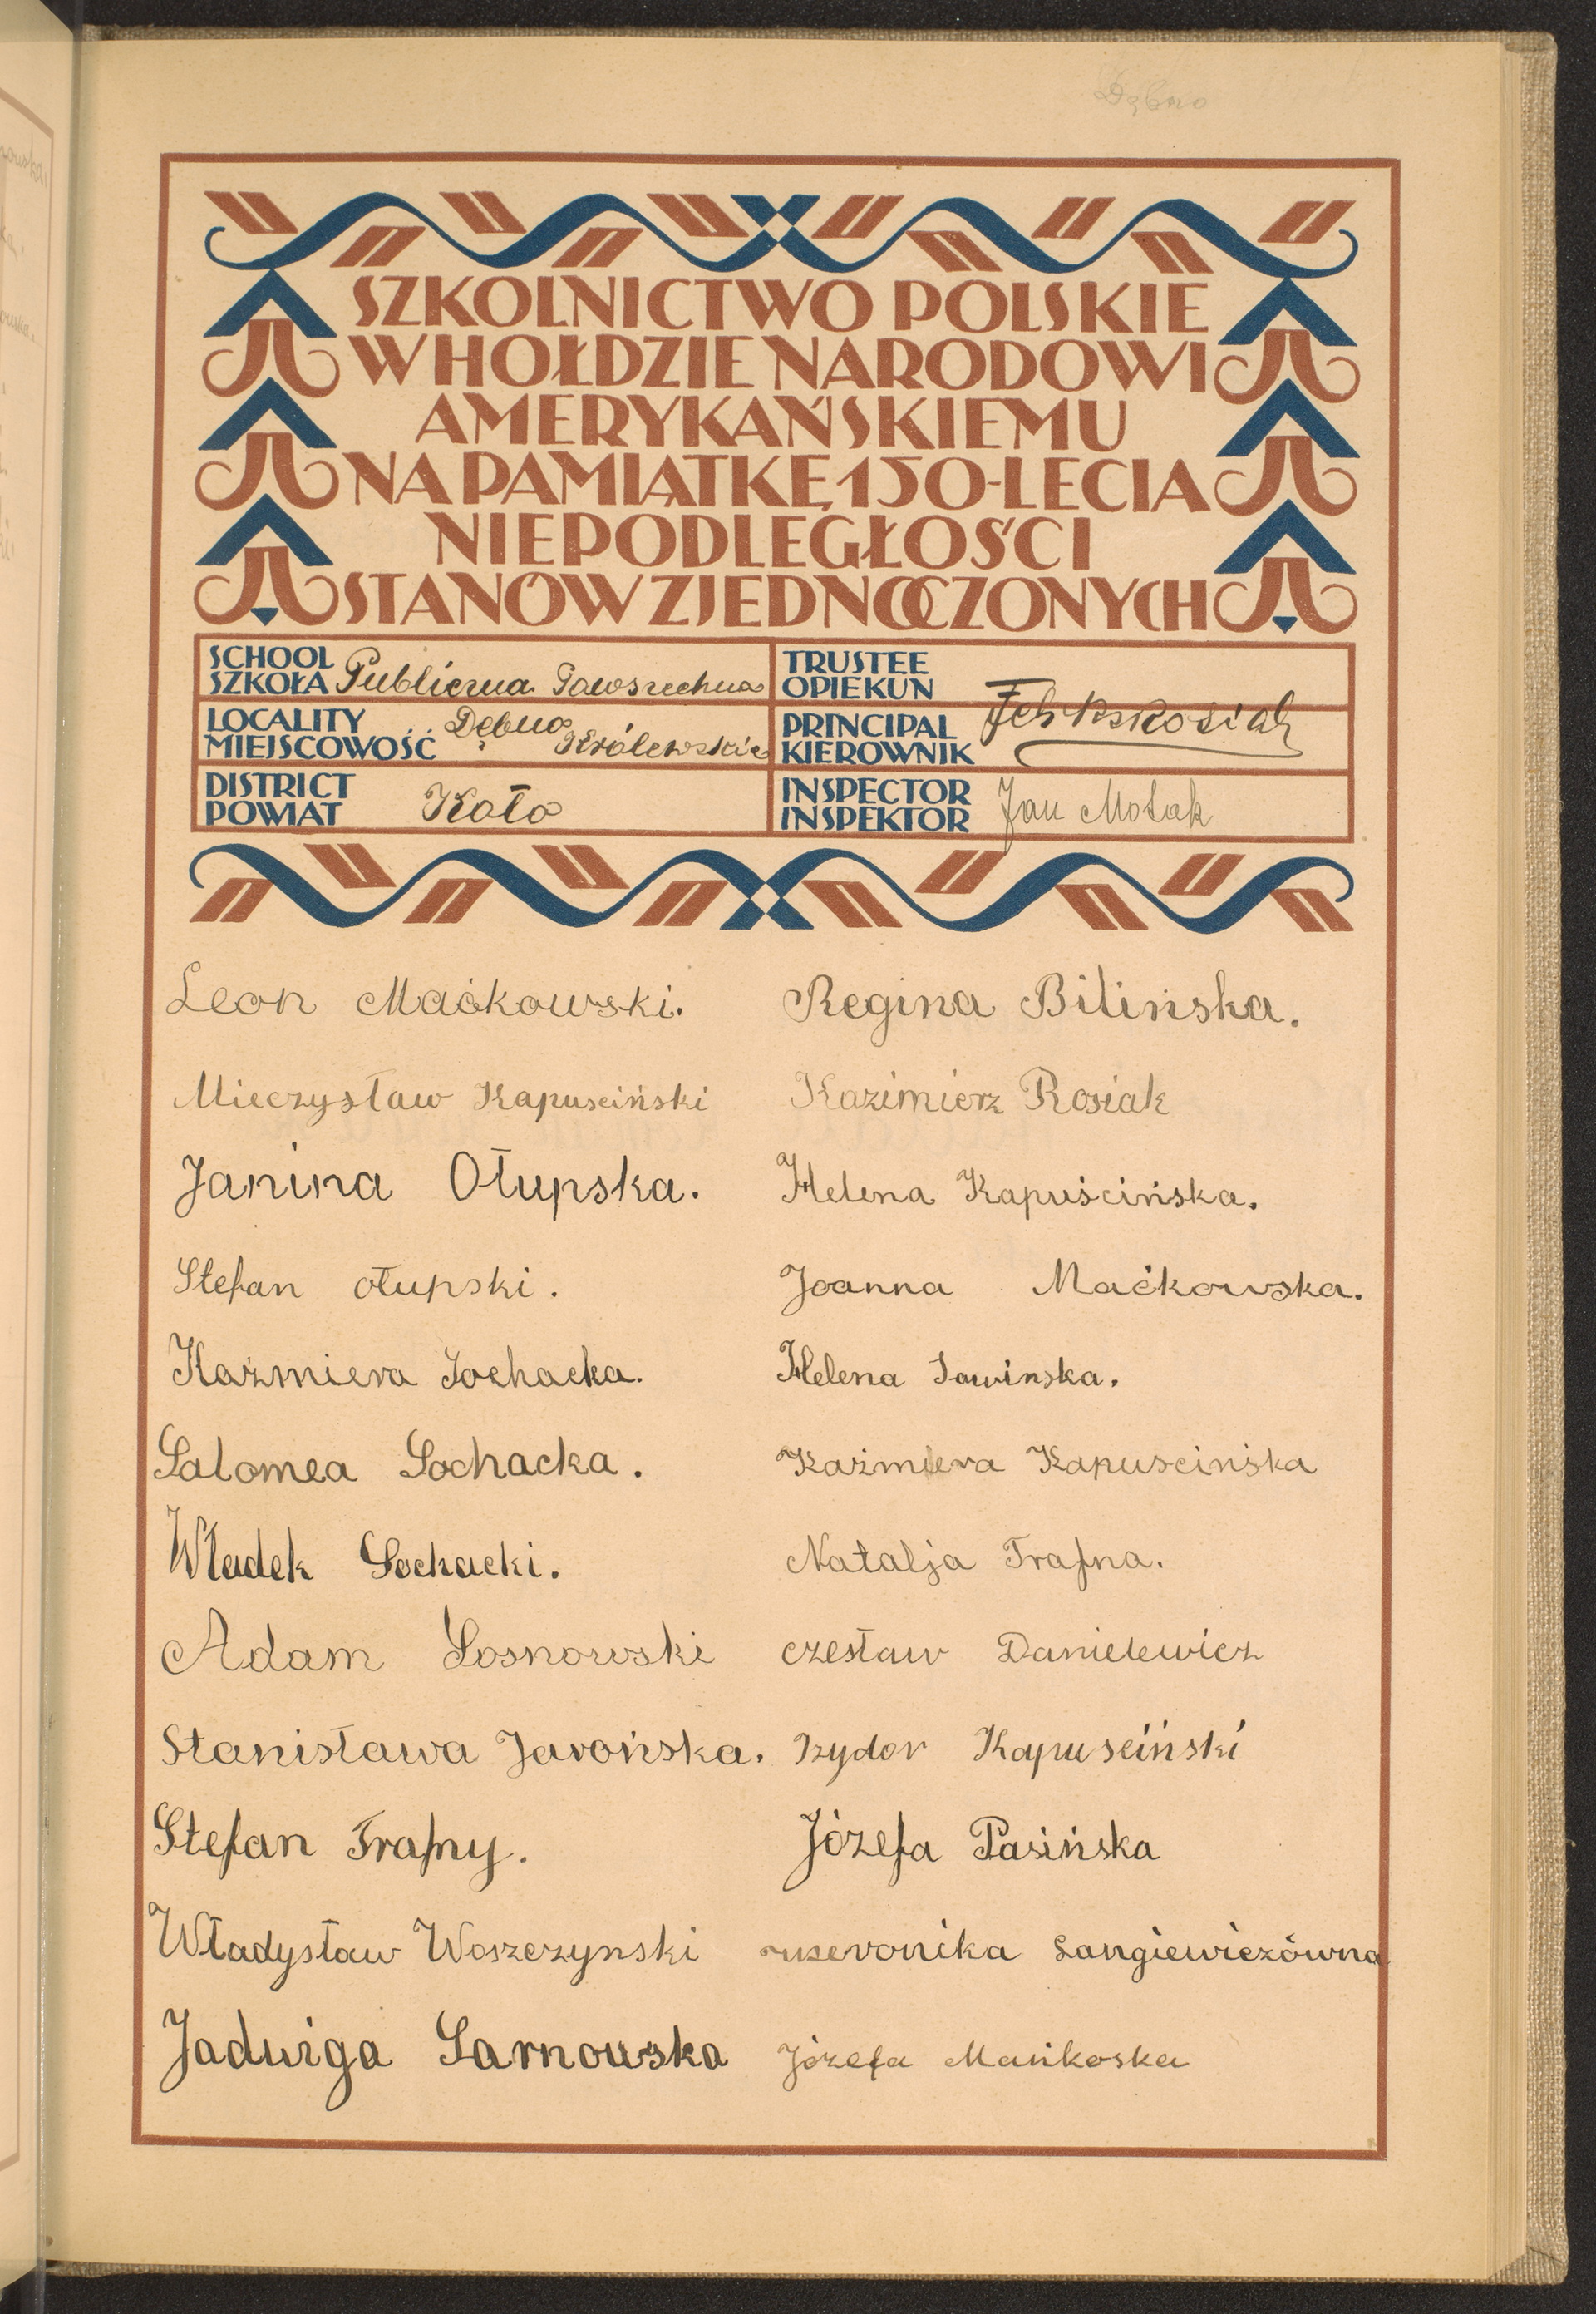 Dębno
SZKOLNICTWO POLSKIE
W HOŁDZIE NARODOWI
AMERYKAŃSKIEMU
NA PAMIĄTKĘ 150-LECIA
NIEPODLEGŁOŚCI
STANÓW ZJEDNOCZONYCH
SCHOOL
SZKOŁA Publiczna Powszechna
LOCALITY
MIEJSCOWOŚĆ Dębno Królewskie
DISTRICT
POWIAT Koło
TRUSTEE
OPIEKUN
PRINCIPAL
KIEROWNIK Feliks Rosiak
INSPECTOR
INSPEKTOR Jan Motak
Leon Maćkowski.
Mieczysław Kapusciński
Janina Ołupska.
Stefan ołupski.
Kaźmiera Sochacka.
Salomea Sochacka.
Władek Sochacki.
Adam Sosnowski
Stanisława Jarońska.
Stefan Trafny.
Władysław Woszczynski
Jadwiga Sarnowska
Regina Bilińska.
Kazimierz Rosiak
Helena Kapuścińska.
Joanna Maćkowska.
Helena Sawinska.
Kaźmiera Kapuscińska
Natalja Trafna.
czesław Danielewicz
Izydor Kapuseiński
Józefa Pasińska
weronika Langiewiczówna
Józefa Mańkoska